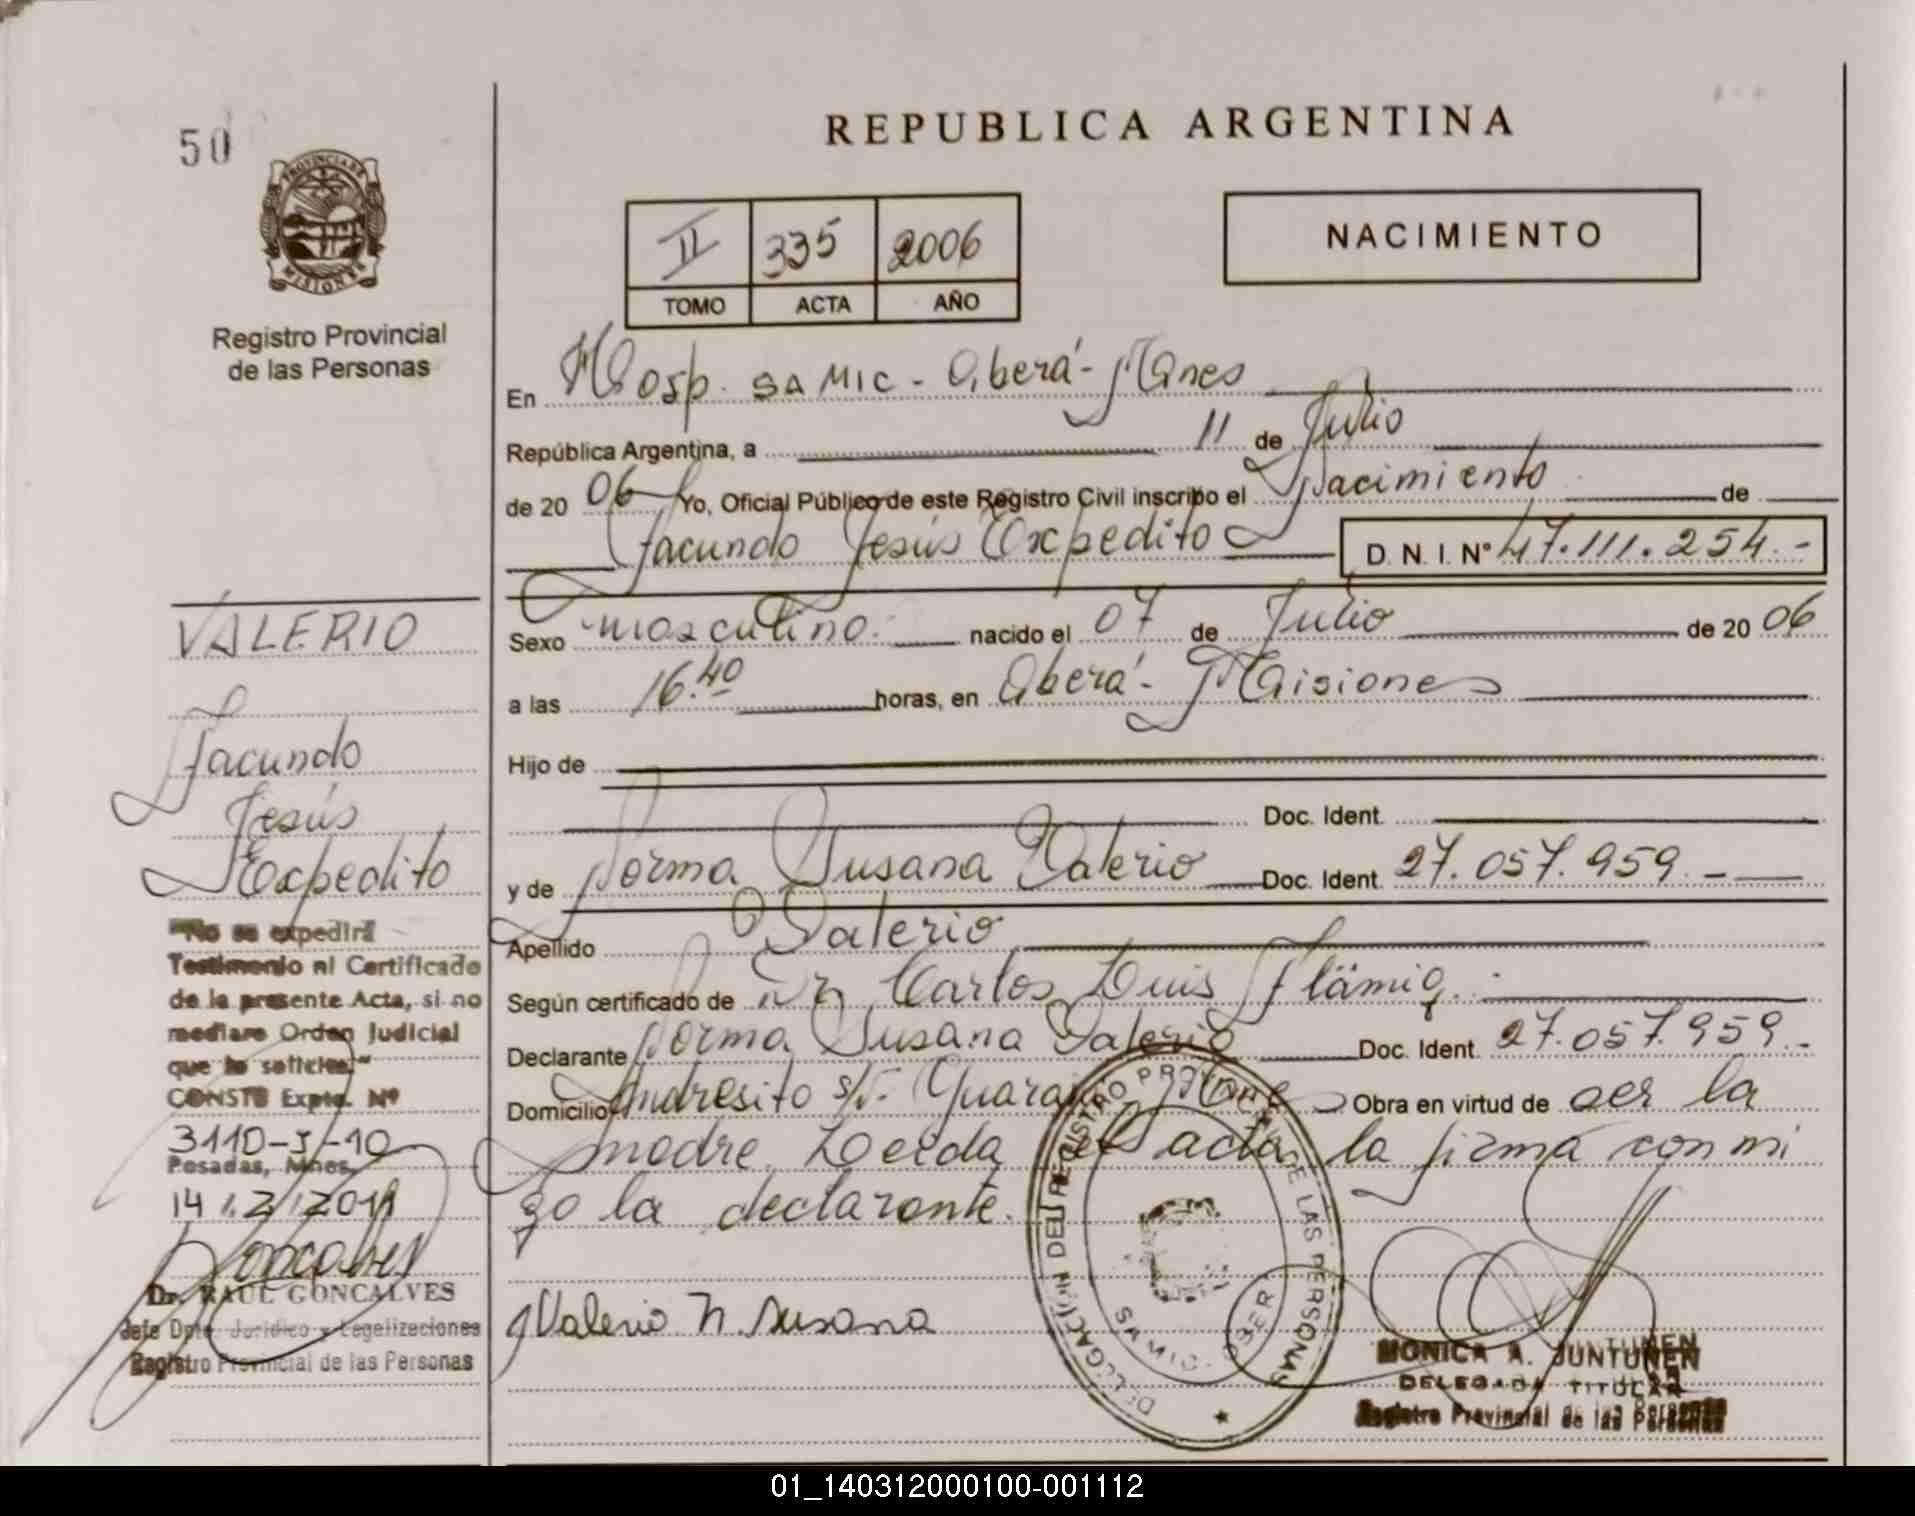 50
PROVINCIA DE
MISIONES
Registro Provincial
de las Personas
REPUBLICA ARGENTINA
II 335 2006
TOMO ACTA AÑO
NACIMIENTO
En Hosp. SAMIC - Oberá - Mnes
República Argentina, a 11 de Julio
de 20 06 Yo, Oficial Público de este Registro Civil inscribo el Nacimiento de
Facundo Jesús Expedito D.N.I. Nº 47.111.254.-
Sexo masculino. nacido el 07 de Julio de 20 06
a las 16.40 horas, en Oberá - Misiones
Hijo de
Doc. Ident.
y de Norma Susana Valerio Doc. Ident. 27.057.959.-
Apellido Valerio
Según certificado de Dr. Carlos Luis
Declarante Norma Susana Valerio Doc. Ident. 27.057.959.-
Domicilio Andresito s/n. Guaraní Mnes Obra en virtud de ser la
madre. Leida el acta, la firma conmi
go la declarante.
Valerio N. Susana
VALERIO
Facundo
Jesús
Expedito
"No se expedirá
Testimonio ni Certificado
de la presente Acta, si no
mediare Orden Judicial
que lo solicite."
CONSTE Expte. Nº
3110-J-10
Posadas, Mnes.
14 12 2011
Goncalves
Dr. RAUL GONCALVES
Jefe Dpto. Jurídico y Legalizaciones
Registro Provincial de las Personas
DELEGACIÓN DEL REGISTRO PROVINCIAL DE LAS PERSONAS
SAMIC - OBERÁ
MONICA A. JUNTUNEN
DELEGADA TITULAR
Registro Provincial de las Personas
01_140312000100-001112